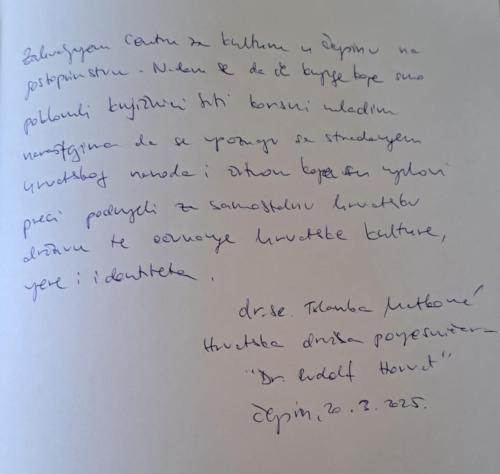 Zahvaljujem Centru za kulturu u Čepinu na
gostoprimstvu. Nadam se da će knjige koje smo
poklonili knjižnici biti korisni mladim
naraštajima da se upoznaju sa stradanjem
hrvatskog naroda i žrtvom koje su njihovi
preci podnijeli za samostalnu hrvatsku
državu te očuvanje hrvatske kulture,
vjere i identiteta.
dr. sc.
Hrvatska družba povjesničara
"Dr. Rudolf Horvat"
Čepin, 20. 3. 2025.